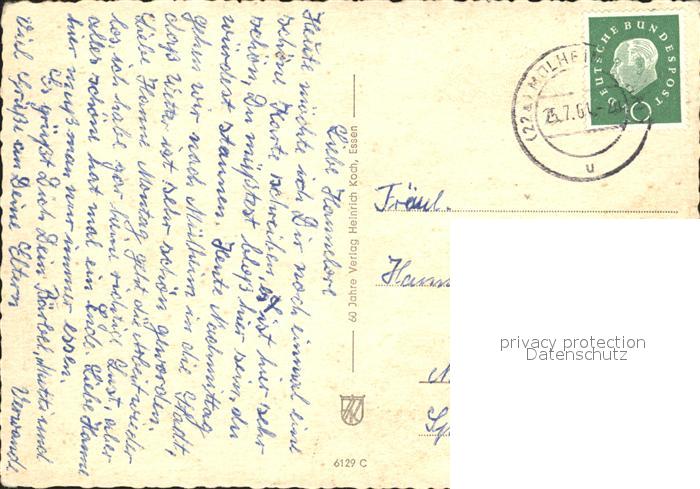 Liebe Hannelore
Heute möchte ich Dir noch einmal eine
schöne Karte schreiben. Es ist hier sehr
schön, Du müßtest bloß hier sein, du
würdest staunen. Heute Nachmittag
gehen wir nach Mülheim in die Stadt,
das Wetter ist sehr schön geworden.
Liebe Hanne Montag geht die Arbeit wieder
los ich habe gar keine richtige Lust, aber
alles schöne hat mal ein Ende. Liebe Hanne
hier muß man nur immer essen.
Es grüßt Dich Dein Bärbel, Mutti und
Viel Grüße an Deine Eltern Verwandte
60 Jahre Verlag Heinrich Koch, Essen
6129 C
DEUTSCHE BUNDESPOST
(22a) MÜLHEI
25.7.61
u
Fräul.
Hann
privacy protection
Datenschutz